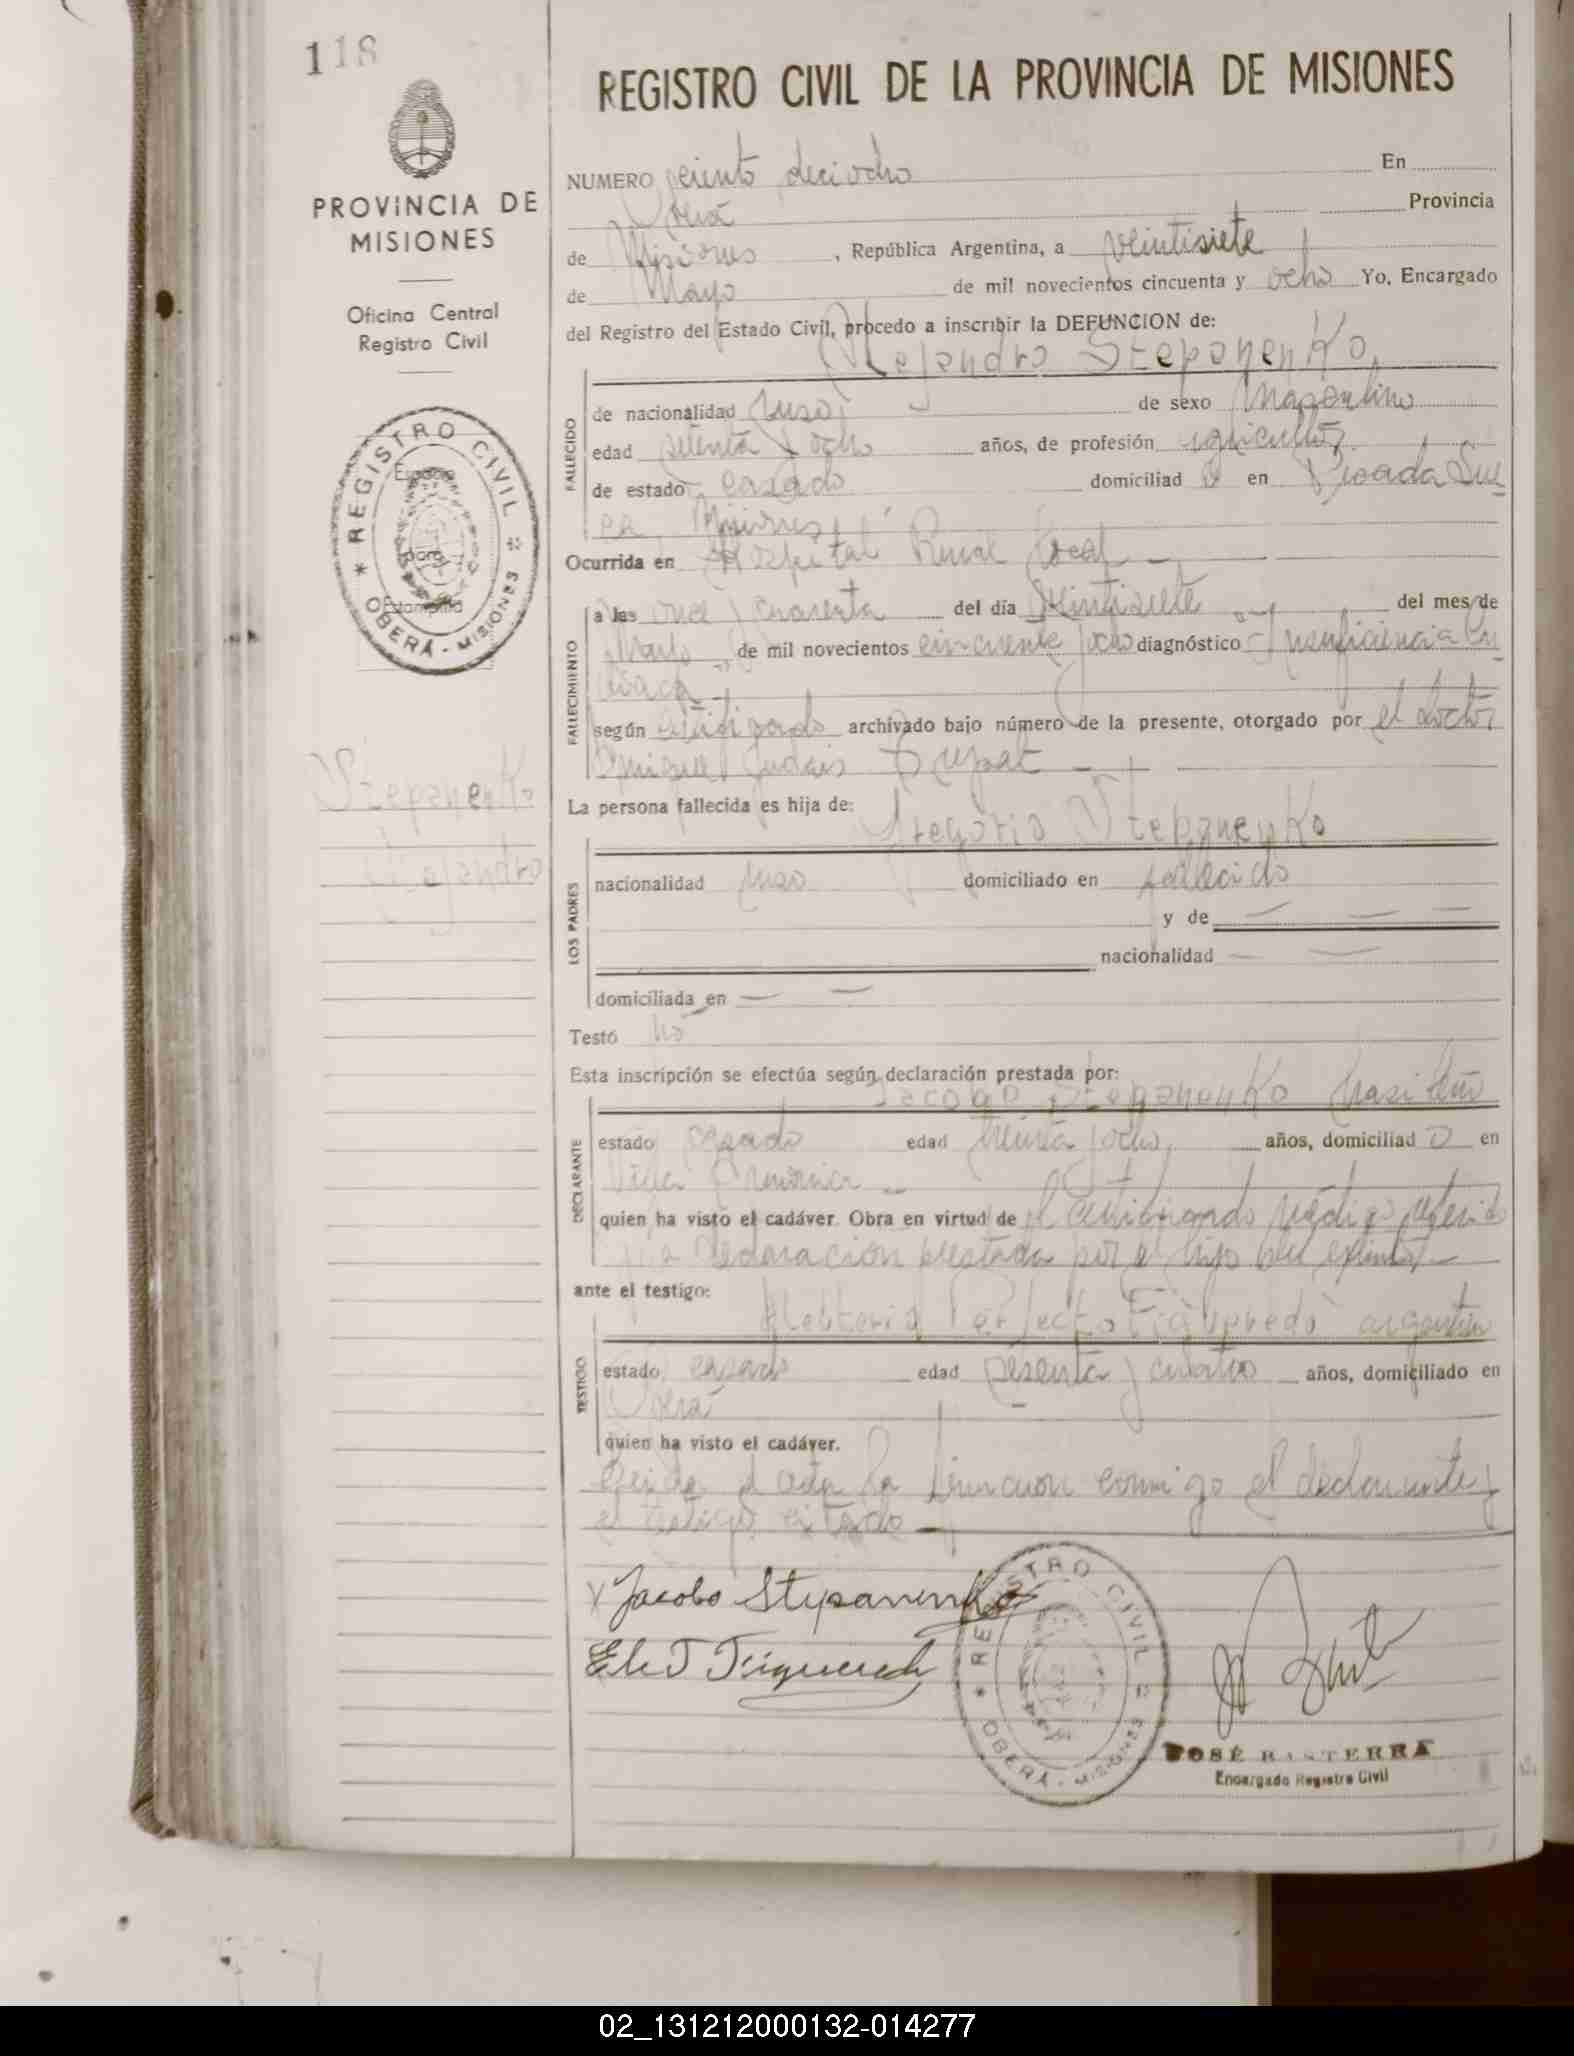 118
REGISTRO CIVIL DE LA PROVINCIA DE MISIONES
PROVINCIA DE
MISIONES
Oficina Central
Registro Civil
REGISTRO CIVIL
OBERÁ - MISIONES
Espacio
para
Estampilla
Stepanenko
Alejandro
NUMERO ciento deciocho En
Oberá Provincia
de Misiones, República Argentina, a veintisiete
de Mayo de mil novecientos cincuenta y ocho Yo, Encargado
del Registro del Estado Civil, procedo a inscribir la DEFUNCION de:
Alejandro Stepanenko
FALLECIDO
de nacionalidad ruso de sexo Masculino
edad setenta y ocho años, de profesión agricultor
de estado casado domiciliad o en Picada Sue
ca, Misiones
Ocurrida en Hospital Rural local
FALLECIMIENTO
a las once y cuarenta del día veintisiete del mes de
de mil novecientos cincuenta y ocho diagnóstico Insuficiencia
según certificado archivado bajo número de la presente, otorgado por el doctor
Miguel
La persona fallecida es hija de:
Gregorio Stepanenko
LOS PADRES
nacionalidad ruso domiciliado en fallecido
y de
nacionalidad
domiciliada en
Testó no
Esta inscripción se efectúa según declaración prestada por:
Jacobo Stepanenko brasileño
DECLARANTE
estado casado edad treinta y ocho años, domiciliad o en
Villa Armonia
quien ha visto el cadáver. Obra en virtud de el certificado médico referido
y la declaración prestada por el hijo del extinto
ante el testigo:
Eleuterio Perfecto Figueredo argentino
TESTIGO
estado casado edad sesenta y cuatro años, domiciliado en
Oberá
quien ha visto el cadáver.
Leida el acta la firman conmigo el declarante y
el testigo citado
Jacobo Stepanenko
Figueredo
REGISTRO CIVIL
OBERÁ - MISIONES
JOSÉ BASTERRA
Encargado Registro Civil
02_131212000132-014277